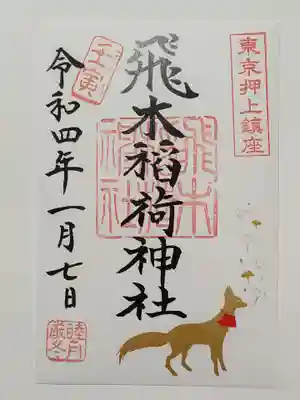 東京押上鎮座
飛木稲荷神社
飛木稲荷神社
壬寅
令和四年一月七日
睦月
厳冬